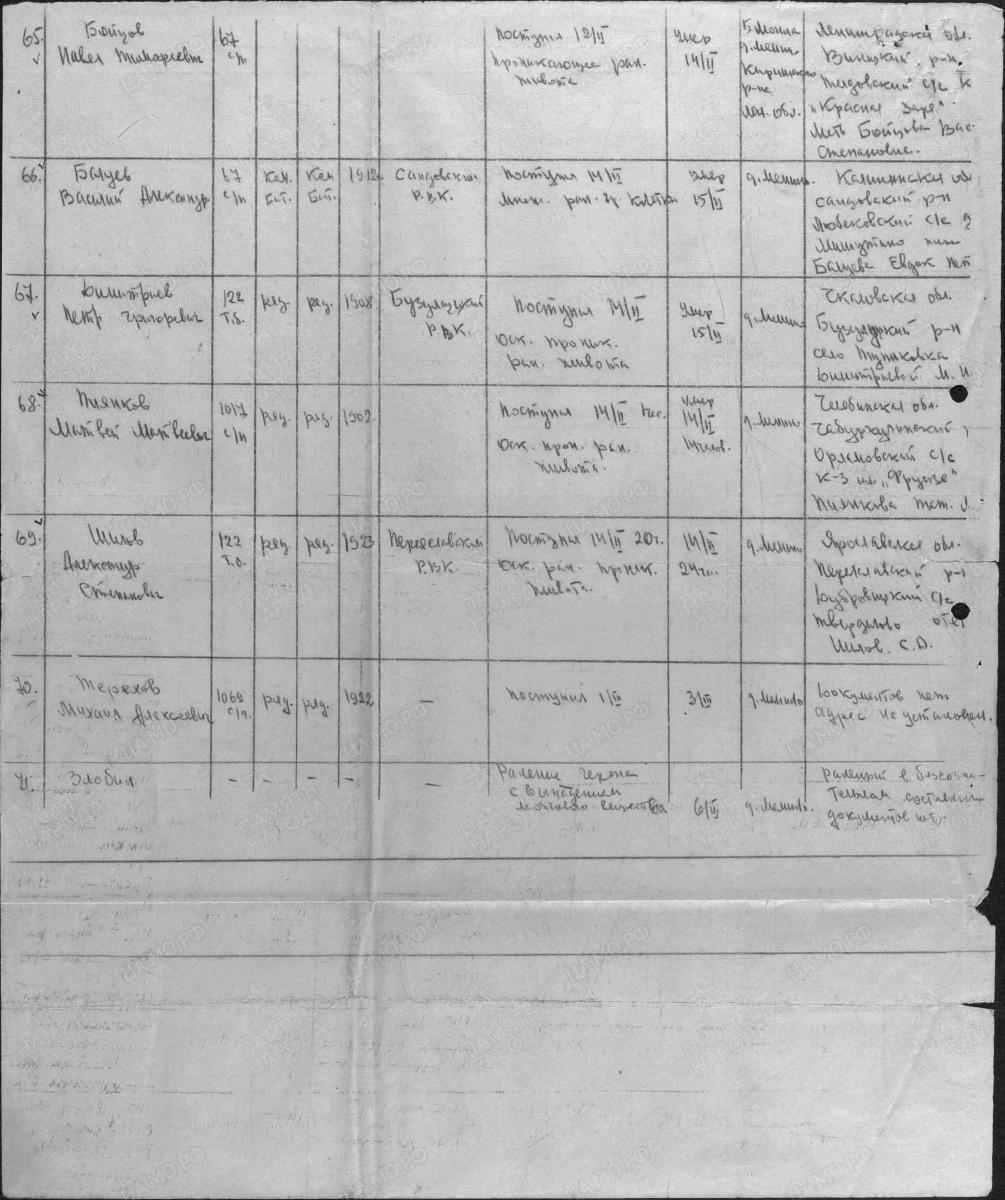 65. Бойцов Павел Тимофеевич 67 с/п Поступил 12/II Проникающее ран. живота Умер 14/II д. Мелин. Киришского р-на Лен. обл. Ленинградская обл. Виницкий р-н. с/с К "Красная Заря" Мать Бойцова Вас. Степановна.
66. Балуев Василий Александр 67 с/п Ком. бат. Ком бат. 1912 Сандовский Р.В.К. Поступил 14/II Множ. ран. гр. клетки Умер 15/II д. Мелин. Калининская об Сандовский р-н Любековский с/с Мишутино Балуева Евдок Пет
67. Димитриев Петр Григоревич 122 т.б. ряд. ряд. 1908 Бузулуцкий Р.В.К. Поступил 14/II Оск. проник. ран. живота Умер 15/II д. Мелин Чкаловская обл. Бузулуцкий р-н село Тупиковка Димитриевой М. И
68. Пиянков Матвей Матвеевич 1017 с/п ряд. ряд. 1902. Поступил 14/II Оск. прон. ран. живота. Умер 14/II 14 часов. д. Мелино Челябинская обл. с/с К-з им. "Фрунзе" Пиянкова Тат.
69. Шилов Александр Степанович 122 т.б. ряд. ряд. 1923 Переславский Р.В.К. Поступил 14/II 20 ч. Оск. ран. проник. живота. 14/II 24 ча. д. Мелино Ярославская обл. Переславский р-н Дубровицкий с/с Твердилово отец Шилов. С. Д.
70. Терехов Михаил Алексеевич 1069 с/п. ряд. ряд. 1922 — Поступил 1/II 3/II д. Мелино Документов нет адрес не установлен.
71. Злобин – – – – — Ранение черепа с выпадением мозгового вещества 6/II д. Мелино. раненый в бессозна- тельном состоянии документов нет.